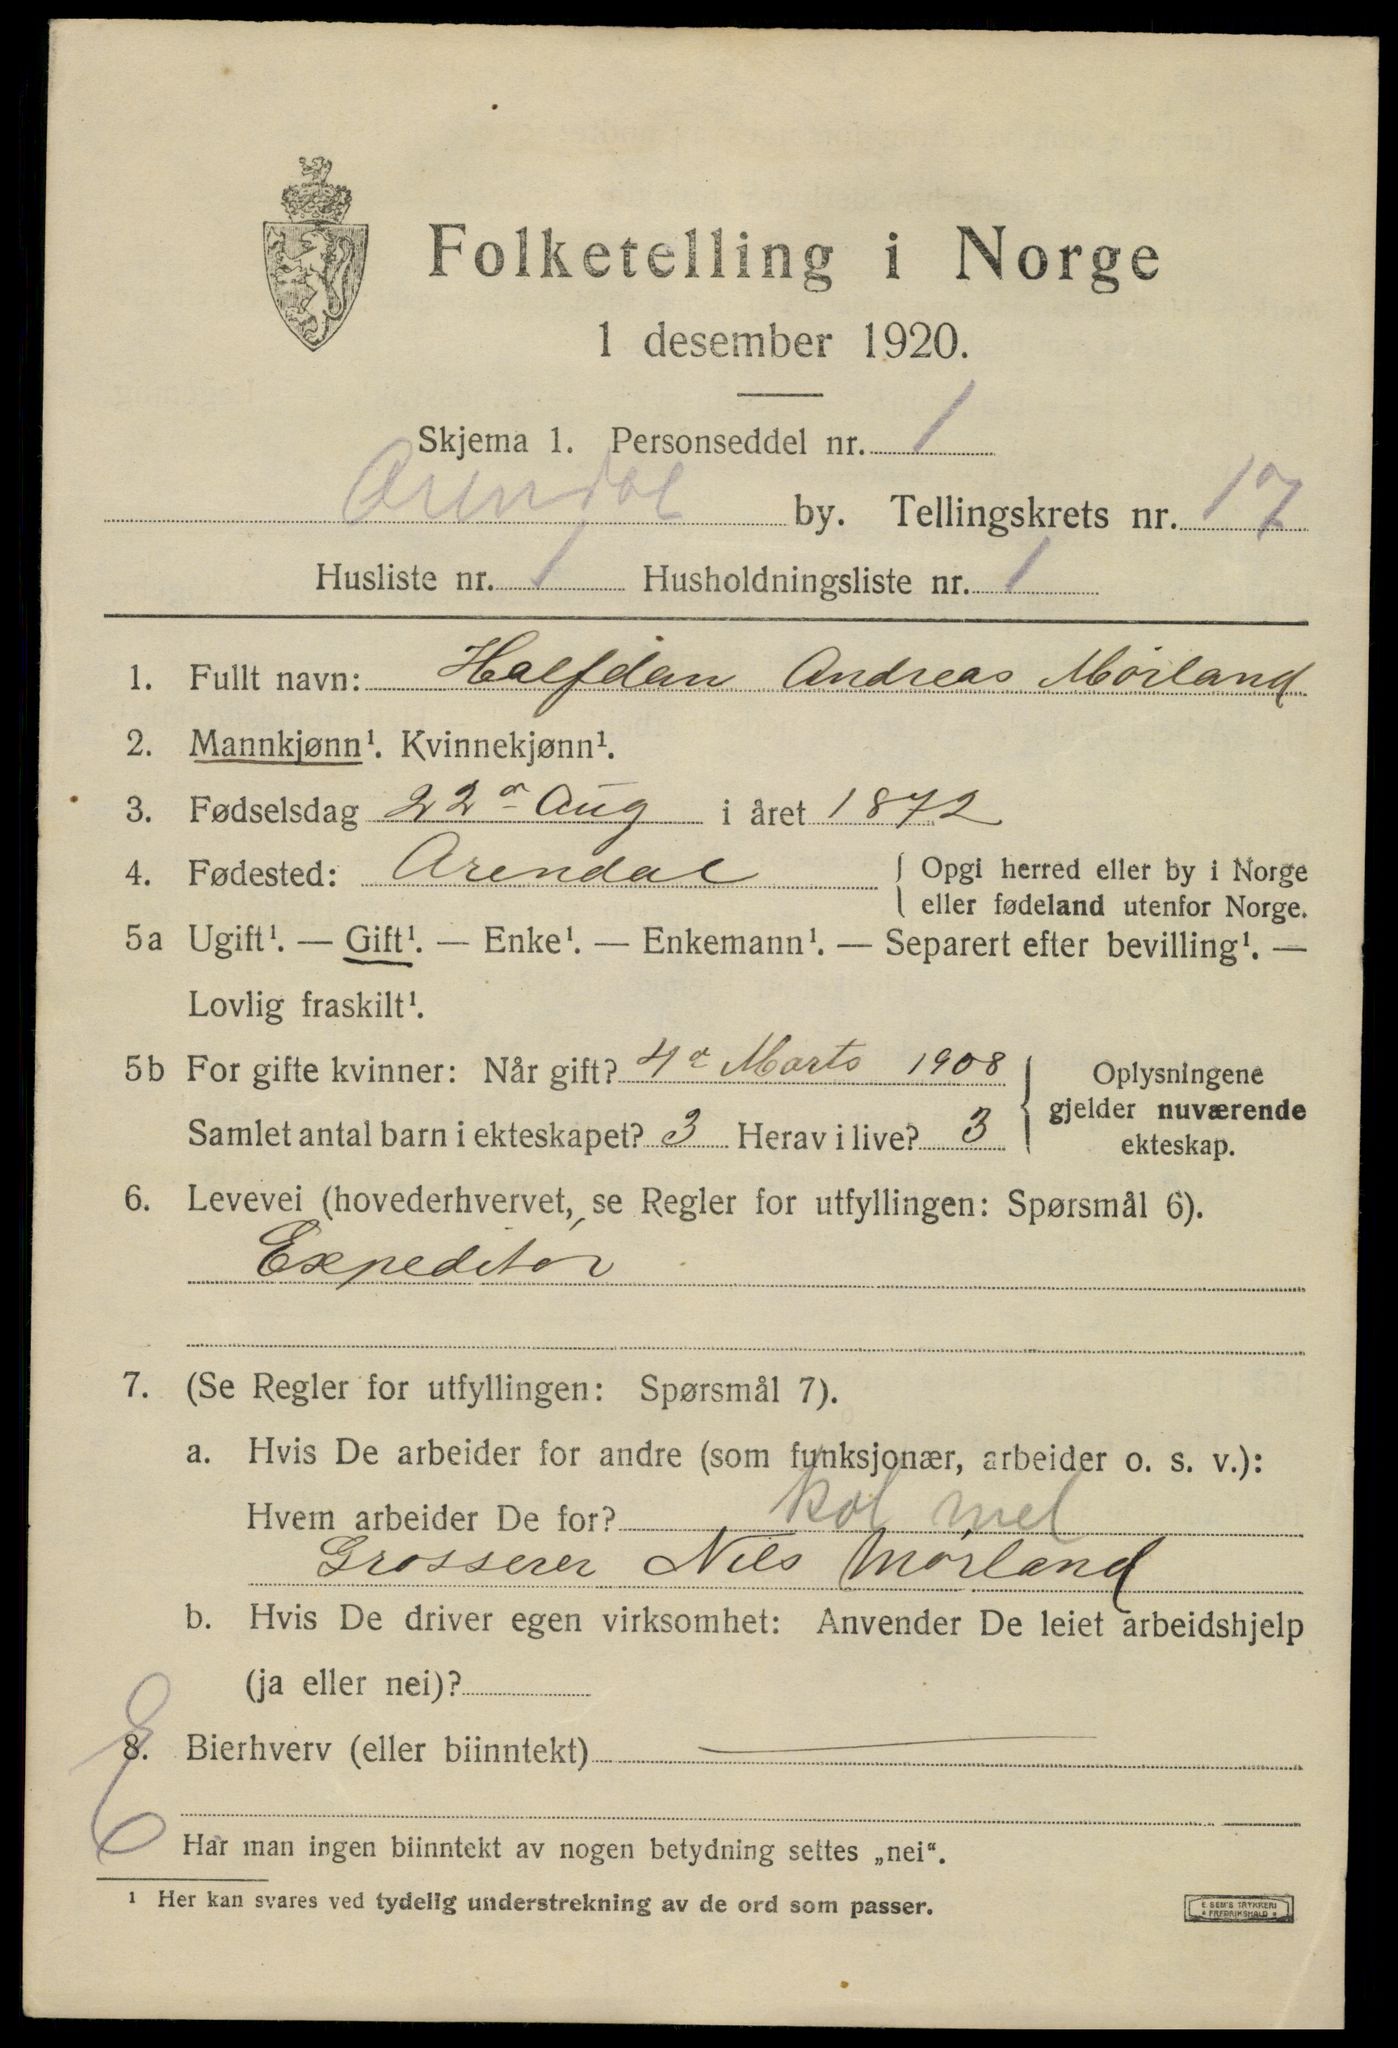 Folketelling i Norge
1 desember 1920.
Skjema 1. Personseddel nr. 1
Arendal by. Tellingskrets nr. 17
Husliste nr. 1 Husholdningsliste nr. 1
1. Fullt navn: Halfdan Andreas Mörland
2. Mannkjønn¹. Kvinnekjønn¹.
3. Fødselsdag 22de Aug i året 1872
4. Fødested: Arendal { Opgi herred eller by i Norge
eller fødeland utenfor Norge.
5a Ugift¹. — Gift¹. — Enke¹. — Enkemann¹. — Separert efter bevilling¹. —
Lovlig fraskilt¹.
5b For gifte kvinner: Når gift? 4de Marts 1908 { Oplysningene
gjelder nuværende
Samlet antal barn i ekteskapet? 3 Herav i live? 3
ekteskap.
6. Levevei (hovederhvervet, se Regler for utfyllingen: Spørsmål 6).
Expeditør
7. (Se Regler for utfyllingen: Spørsmål 7).
a. Hvis De arbeider for andre (som funksjonær, arbeider o. s. v.):
Hvem arbeider De for? kol mel
Grosserer Nils Mørland
b. Hvis De driver egen virksomhet: Anvender De leiet arbeidshjelp
(ja eller nei)?
8. Bierhverv (eller biinntekt)
Har man ingen biinntekt av nogen betydning settes „nei“.
¹ Her kan svares ved tydelig understrekning av de ord som passer.
E SEM'S TRYKKERI
FREDRIKSHALD